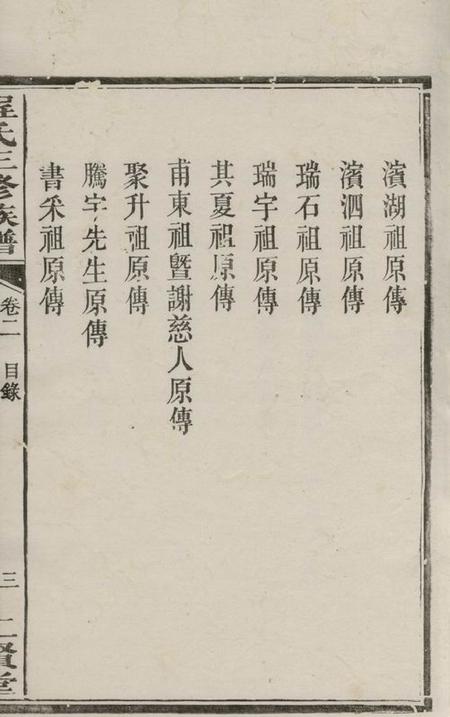 濱湖祖原傳
濱泗祖原傳
瑞石祖原傳
瑞宇祖原傳
其夏祖原傳
甫東祖暨謝慈人原傳
聚升祖原傳
騰宇先生原傳
書釆祖原傳
程氏三修族譜
卷二 目錄
三
二賢堂